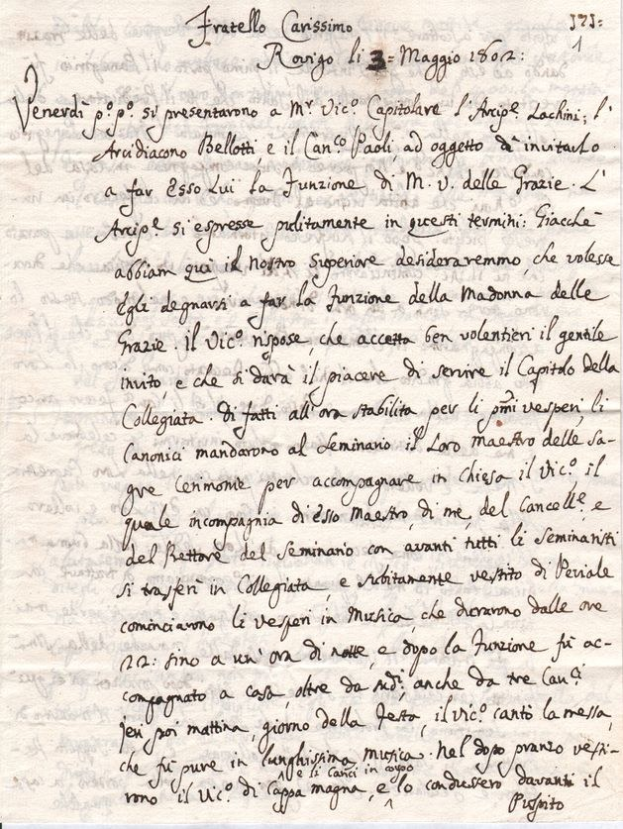 Fratello Carissimo
171=
1
Rovigo li 3= Maggio 1802:
Venerdi p.º p.º si presentarono a M.r Vic.º Capitolare l'Arcip.e Lachini; l'
Arcidiacono Bellotti, e il Can.co Paoli ad oggetto d'invitarlo
a far Esso Lui la Funzione di M. V. delle Grazie. L'
Arcip.e si espresse pulitamente in questi termini: Giacchè
abbiam qui il Nostro Superiore desideraremmo, che volesse
Egli degnarsi a far la Funzione della Madonna delle
Grazie il Vic.º rispose, che accetta ben volentieri il gentile
invito e che si darà il piacere di servire il Capitolo della
Collegiata. Di fatti all'ora stabilita per li pmi vesperi, li
Canonici mandarono al Seminario il Loro maestro delle Sa-
gre Cerimonie per accompagnare in Chiesa il Vic.º, il
quale incompagnia di Esso Maestro, di me, del Cancell.e, e
del Rettore del Seminario con avanti tutti li Seminaristi
si trasferì in Collegiata, e subitamente vestito di Periale
cominciarono li vesperi in Musica, che durarono dalle ore
22: sino a un'ora di notte, e dopo la Funzione fù ac-
compagnato a casa, oltre da sud.i, anche da tre Can.ci
jeri poi mattina, giorno della Festa, il vic.º cantò la messa,
che fù pure in lunghissima musica. Nel dopo pranzo vesti-
rono il Vic.º di Cappa magna, e li Can.ci in corpo lo condussero davanti il
Pulpito